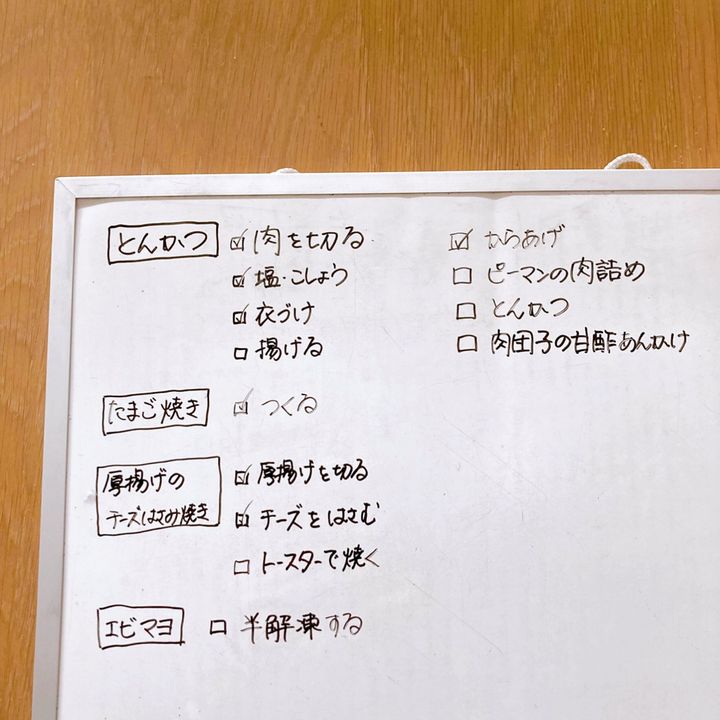 とんかつ ☑ 肉を切る
☑ 塩・こしょう
☑ 衣づけ
☐ 揚げる
たまご焼き ☑ つくる
厚揚げの
チーズはさみ焼き
☑ 厚揚げを切る
☑ チーズをはさむ
☐ トースターで焼く
エビマヨ ☐ 半解凍する
☑ からあげ
☐ ピーマンの肉詰め
☐ とんかつ
☐ 肉団子の甘酢あんかけ